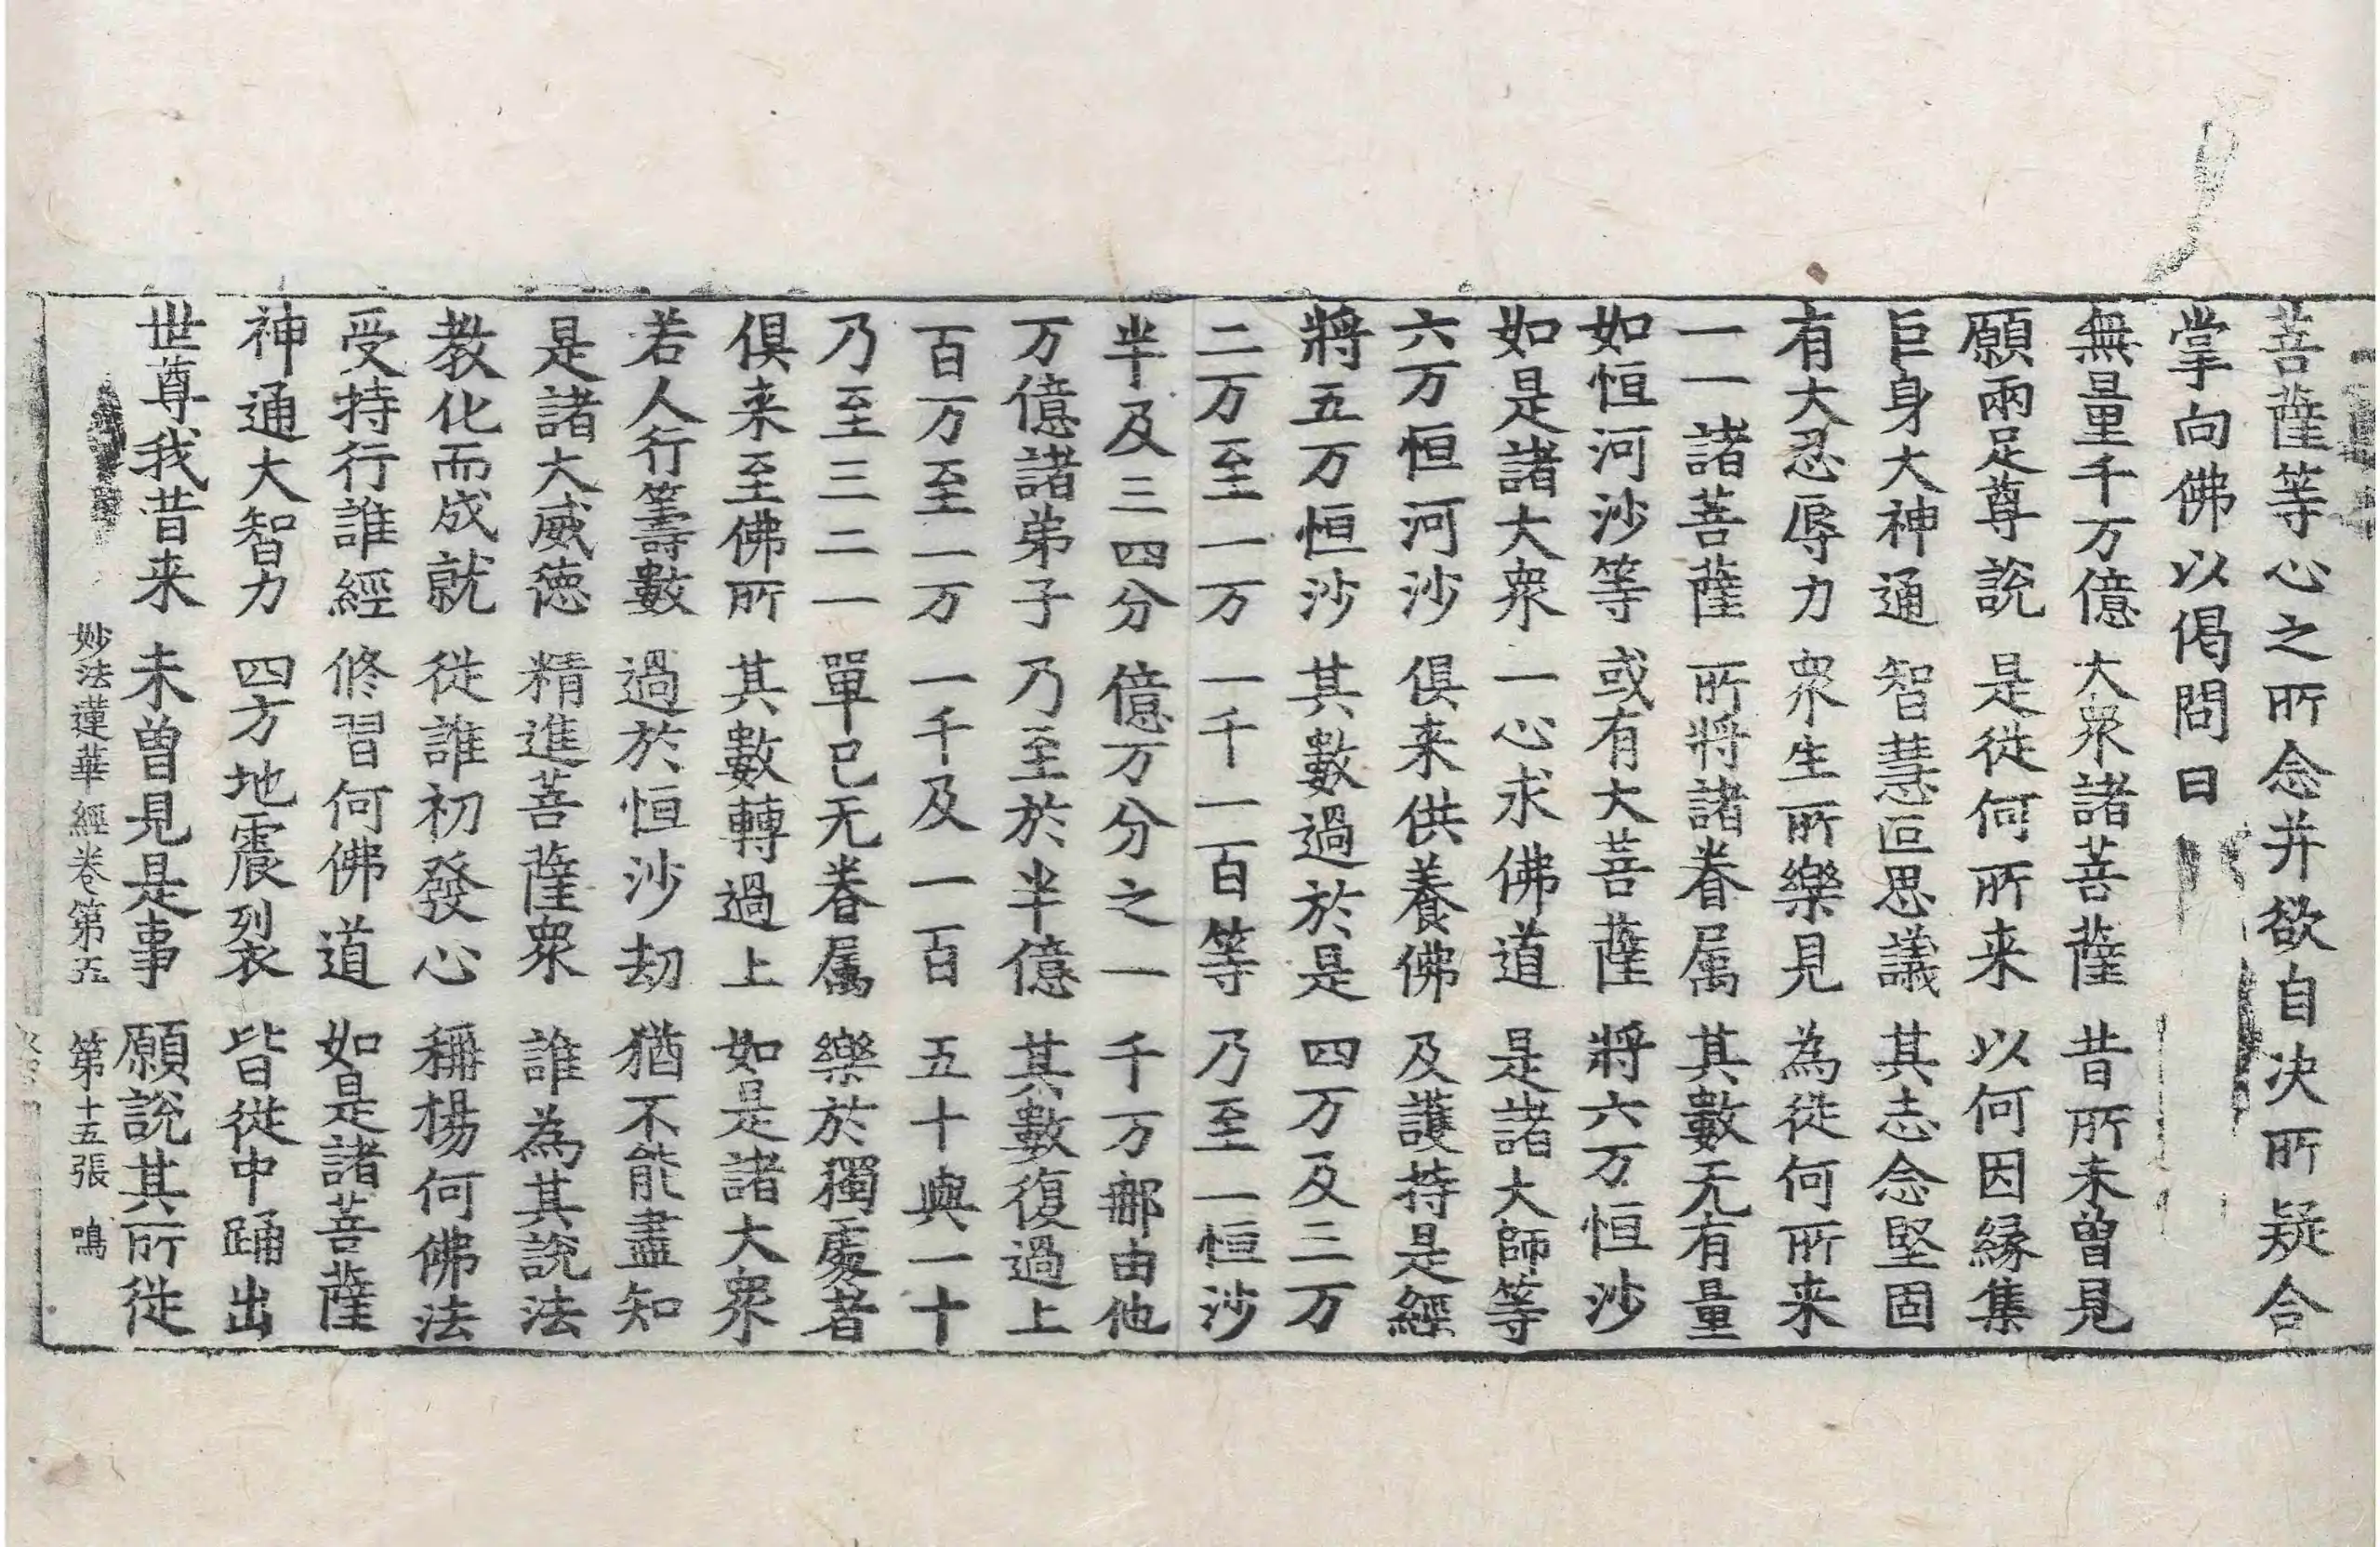 菩薩等心之所念并欲自決所疑合
掌向佛以偈問曰
無量千万億 大衆諸菩薩 昔所未曾見
願兩足尊說 是從何所来 以何因緣集
巨身大神通 智慧叵思議 其志念堅固
有大忍辱力 衆生所樂見 為從何所来
一一諸菩薩 所將諸眷属 其數无有量
如恒河沙等 或有大菩薩 將六万恒沙
如是諸大衆 一心求佛道 是諸大師等
六万恒河沙 俱来供養佛 及護持是經
將五万恒沙 其數過於是 四万及三万
二万至一万 一千一百等 乃至一恒沙
半及三四分 億万分之一 千万那由他
万億諸弟子 乃至於半億 其數復過上
百万至一万 一千及一百 五十與一十
乃至三二一 單己无眷属 樂於獨處者
俱来至佛所 其數轉過上 如是諸大衆
若人行籌數 過於恒沙劫 猶不能盡知
是諸大威徳 精進菩薩衆 誰為其說法
教化而成就 從誰初發心 稱楊何佛法
受持行誰經 修習何佛道 如是諸菩薩
神通大智力 四方地震裂 皆從中踊出
世尊我昔来 未曾見是事 願說其所從
妙法蓮華經卷第五 第十五張 鳴